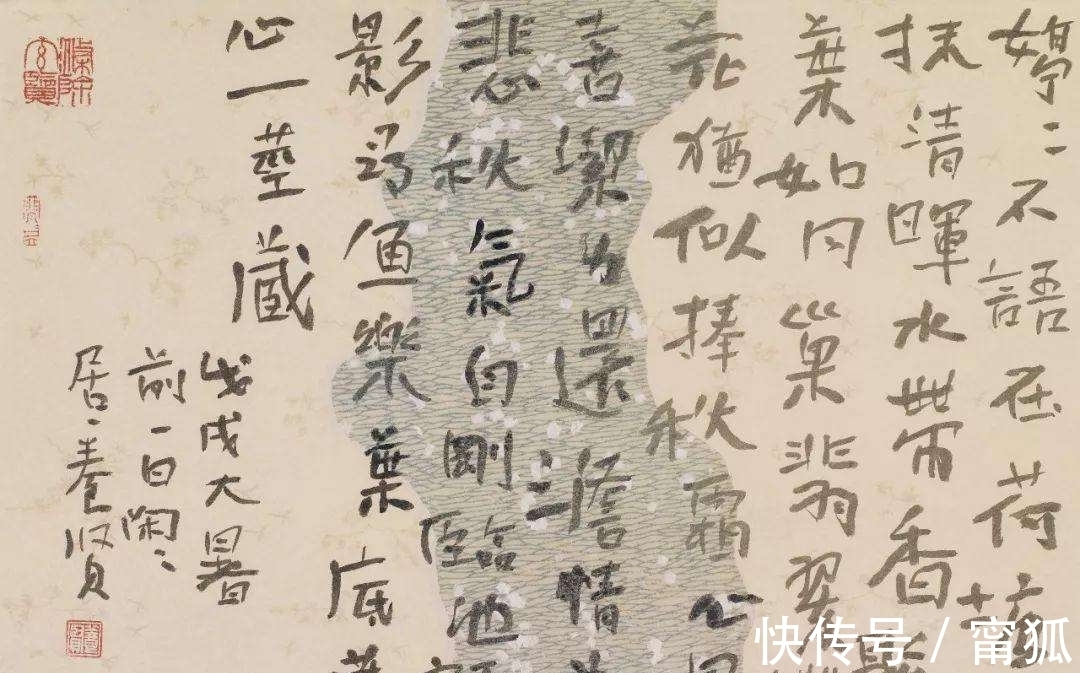 婷〻不語在荷
抹清暉水帶香
葉如巢翡翠
花猶似捧秋霜
喜潔還澹情
悲秋氣自剛臨池
影魚樂葉底
心一莖藏
戊戌大暑
前一日閑〻
居養賢
快传号 / 甯狐